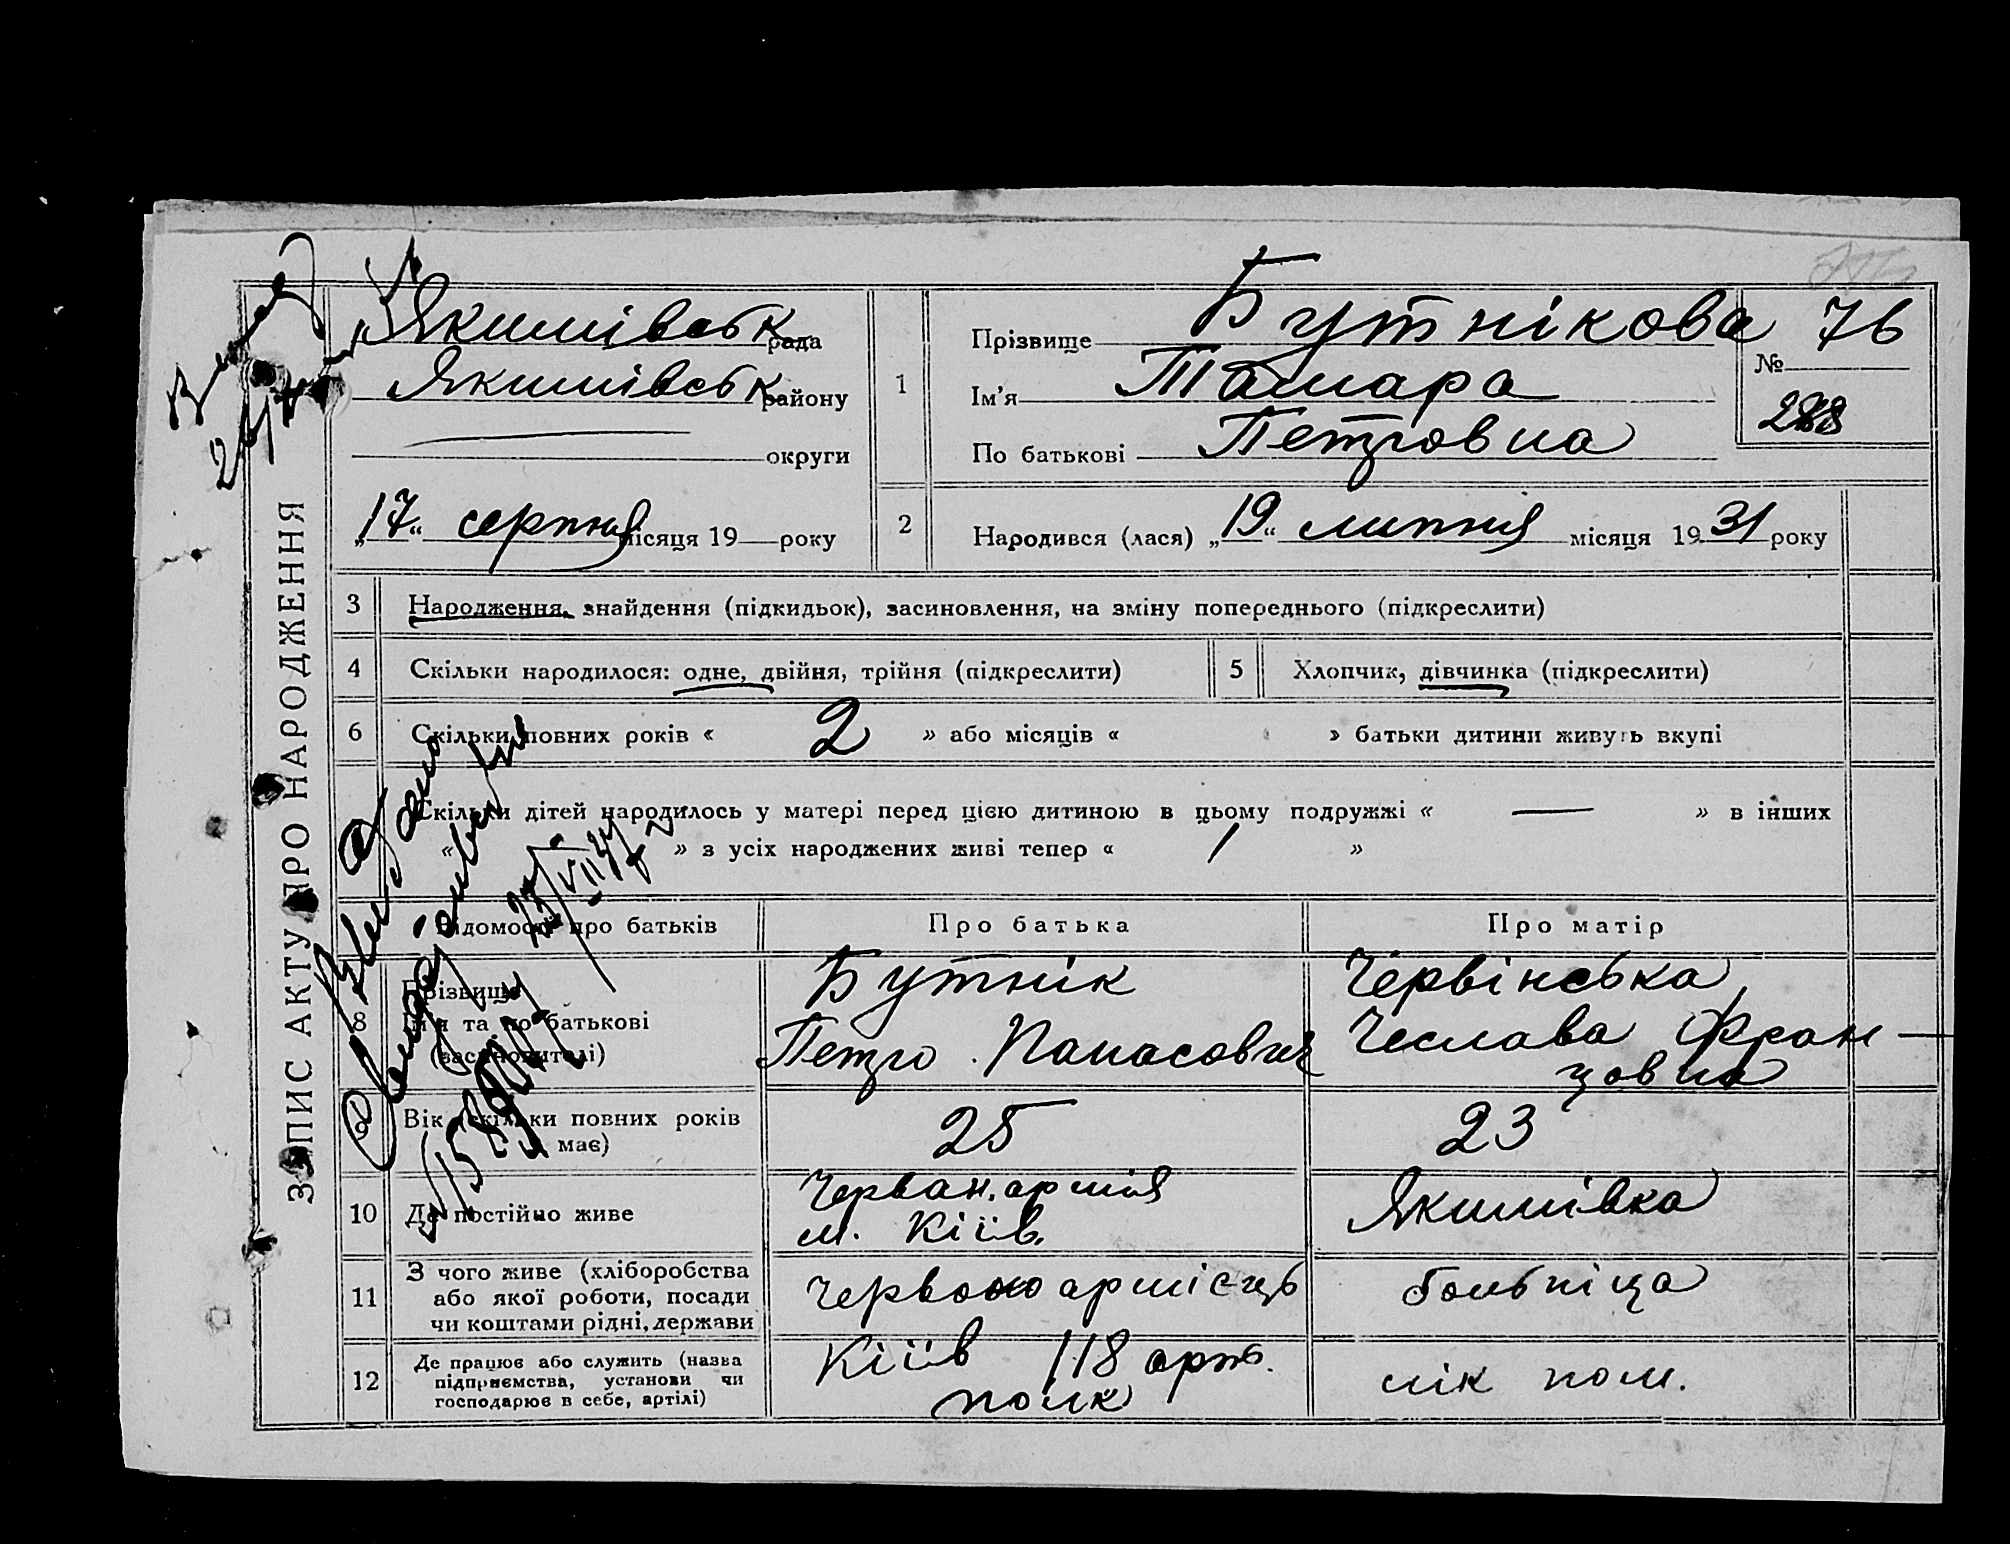 ЗАПИС АКТУ ПРО НАРОДЖЕННЯ
Якимівськ рада
Якимівськ району
округи
„17“ серпня місяця 19 року
1
Прізвище Бутнікова
Ім'я Тамара
По батькові Петровна
№ 76
288
2
Народився (лася) „19“ липня місяця 1931 року
3 Народження, знайдення (підкидьок), засиновлення, на зміну попереднього (підкреслити)
4 Скільки народилося: одне, двійня, трійня (підкреслити)
5 Хлопчик, дівчинка (підкреслити)
6 Скільки повних років « 2 » або місяців « » батьки дитини живуть вкупі
Скільки дітей народилось у матері перед цією дитиною в цьому подружжі « — » в інших
« » з усіх народжених живі тепер « 1 »
Відомості про батьків Про батька Про матір
8 Прізвище
Ім'я та по батькові
(засиновителі)
Бутнік
Петро Панасович
Червінська
Чеслава Фран-
цовна
9 Вік (скільки повних років
має)
25
23
10 Де постійно живе
Червон. армія
м. Київ
Якимівка
11 З чого живе (хліборобства
або якої роботи, посади
чи коштами рідні, держави
червоноармієць
больніца
12 Де працює або служить (назва
підприємства, установи чи
господарює в себе, артілі)
Київ 118 арт.
полк
лік пом.